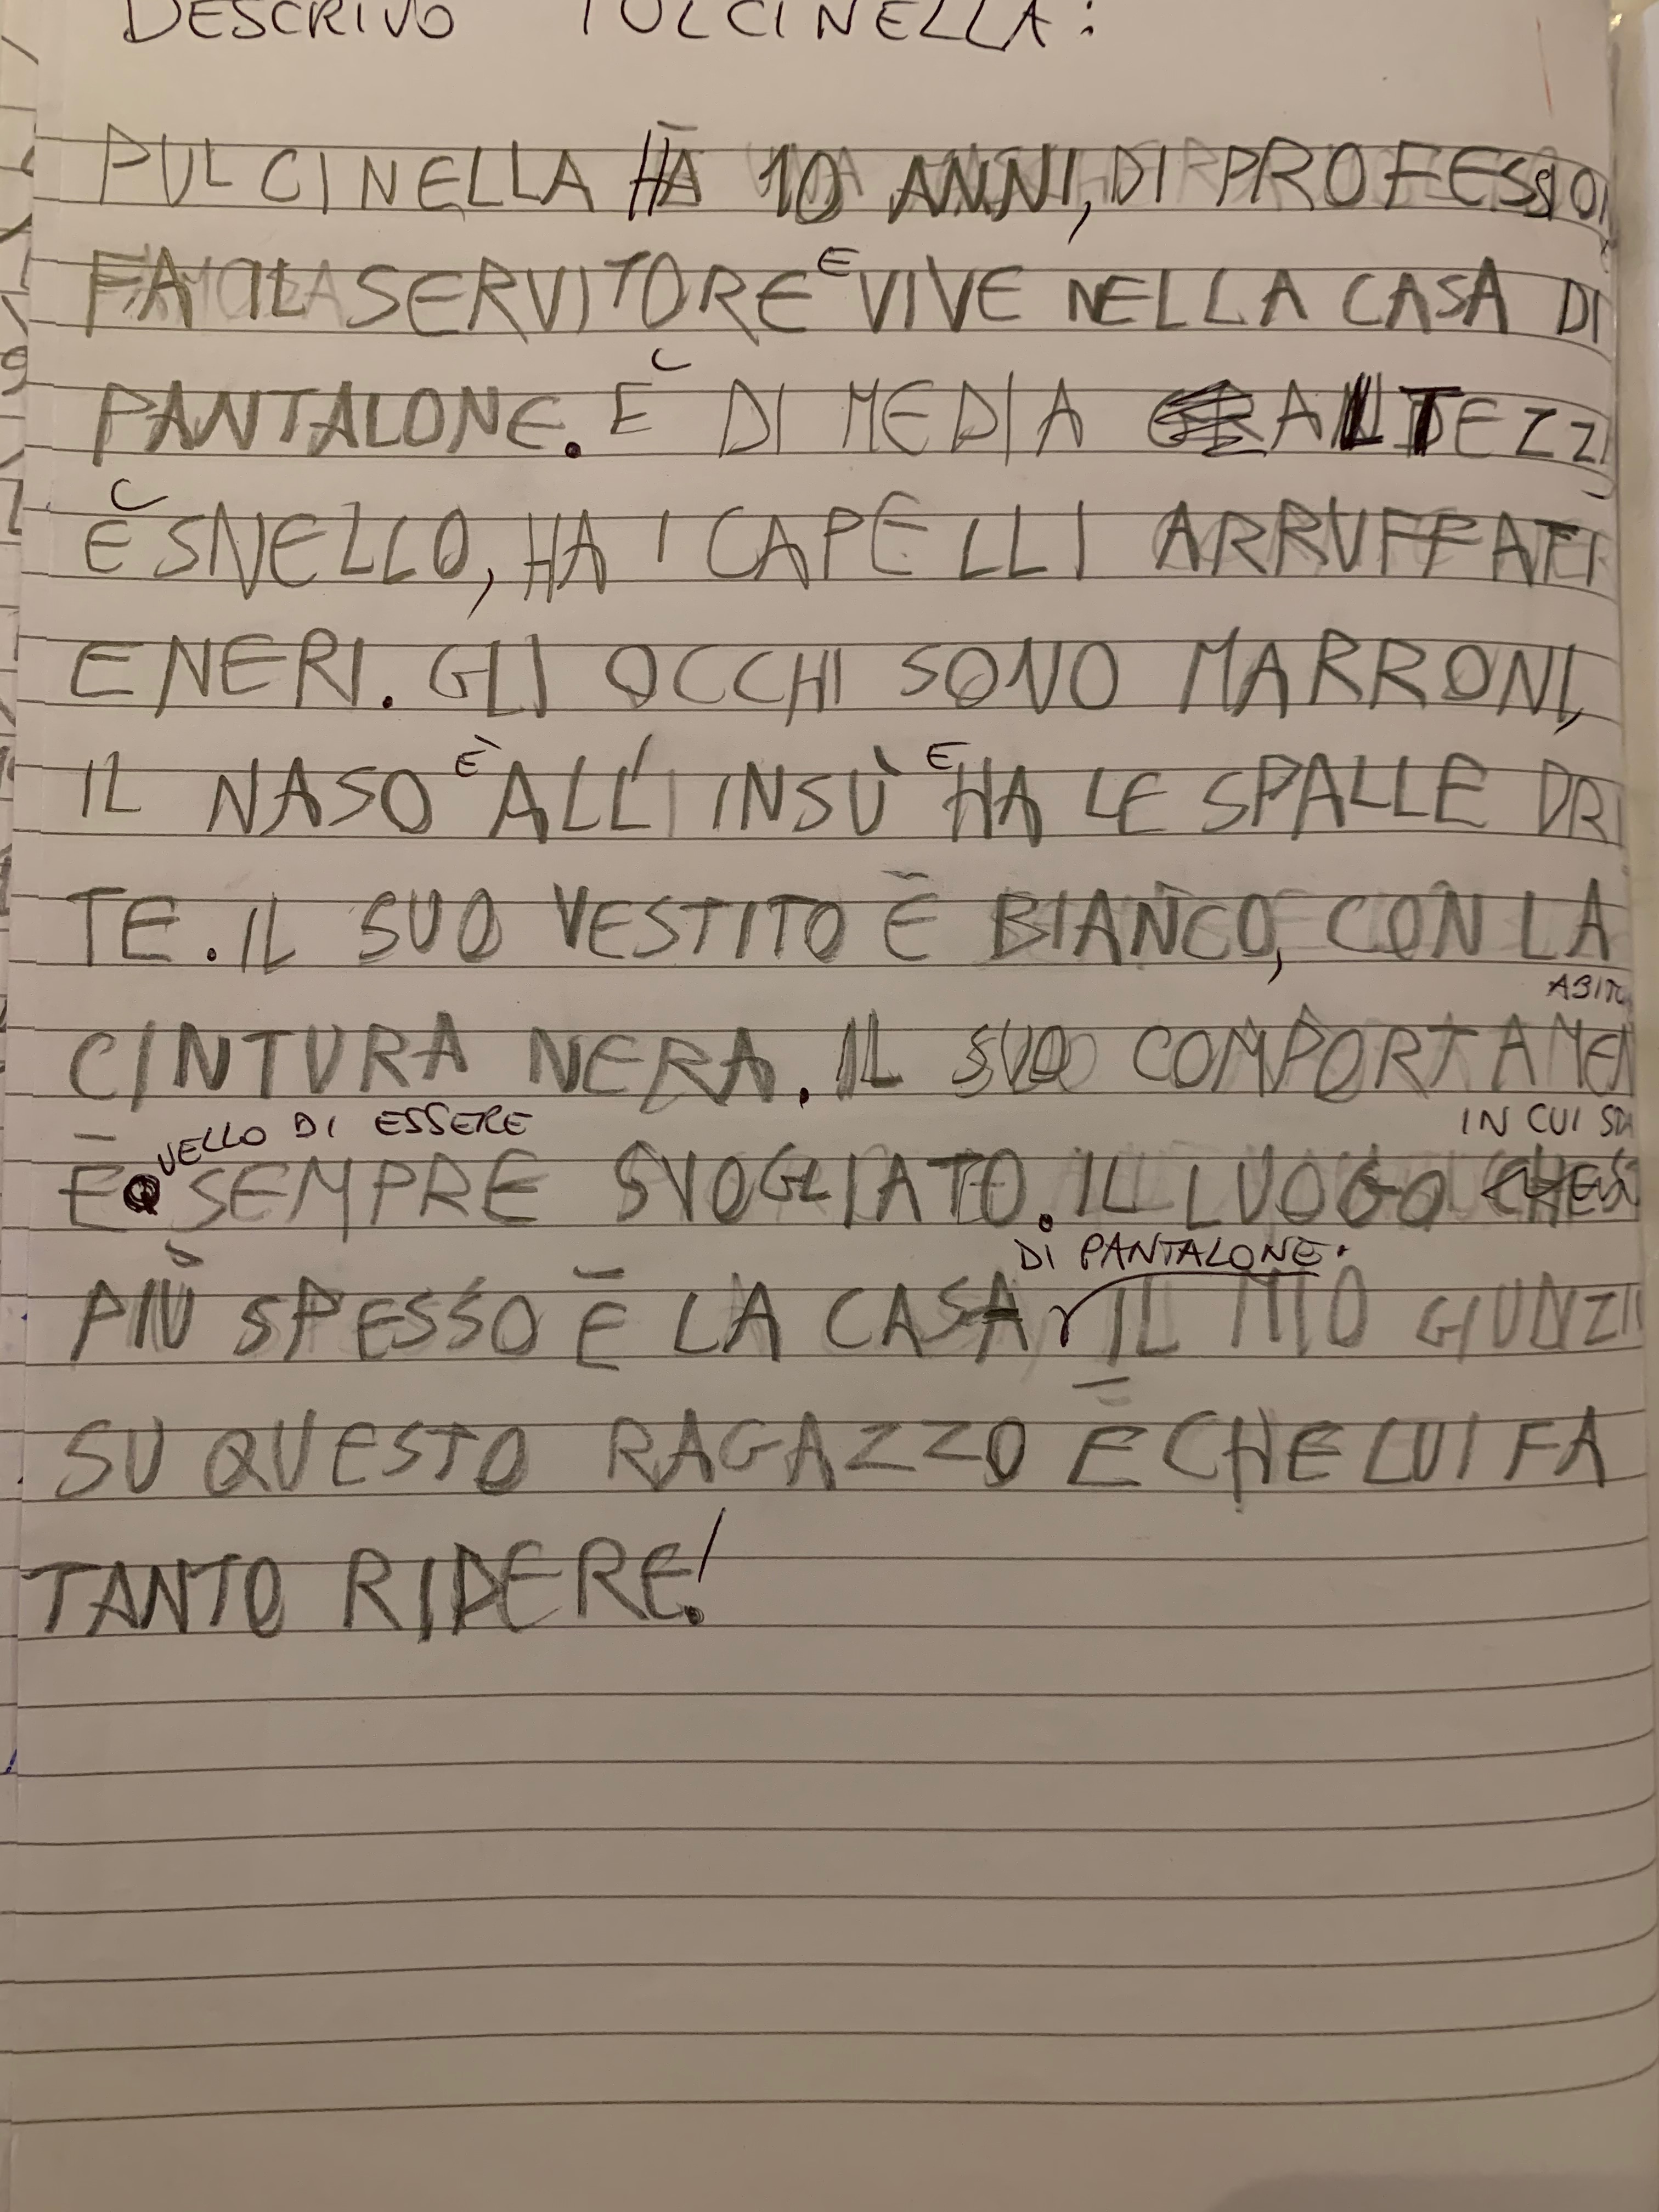 DESCRIVO PULCINELLA:
PULCINELLA HA 10 ANNI, DI PROFESSION
FA IL SERVITORE E VIVE NELLA CASA DI
PANTALONE. È DI MEDIA ALTEZZ
È SNELLO, HA I CAPELLI ARRUFFATI
E NERI. GLI OCCHI SONO MARRONI,
IL NASO È ALL'INSÙ E HA LE SPALLE DRI
TE. IL SUO VESTITO È BIANCO, CON LA
ABITU
CINTURA NERA. IL SUO COMPORTAMEN
QUELLO DI ESSERE IN CUI STA
È SEMPRE SVOGLIATO. IL LUOGO
DI PANTALONE.
PIÙ SPESSO È LA CASA IL MIO GIUDIZI
SU QUESTO RAGAZZO È CHE LUI FA
TANTO RIDERE!